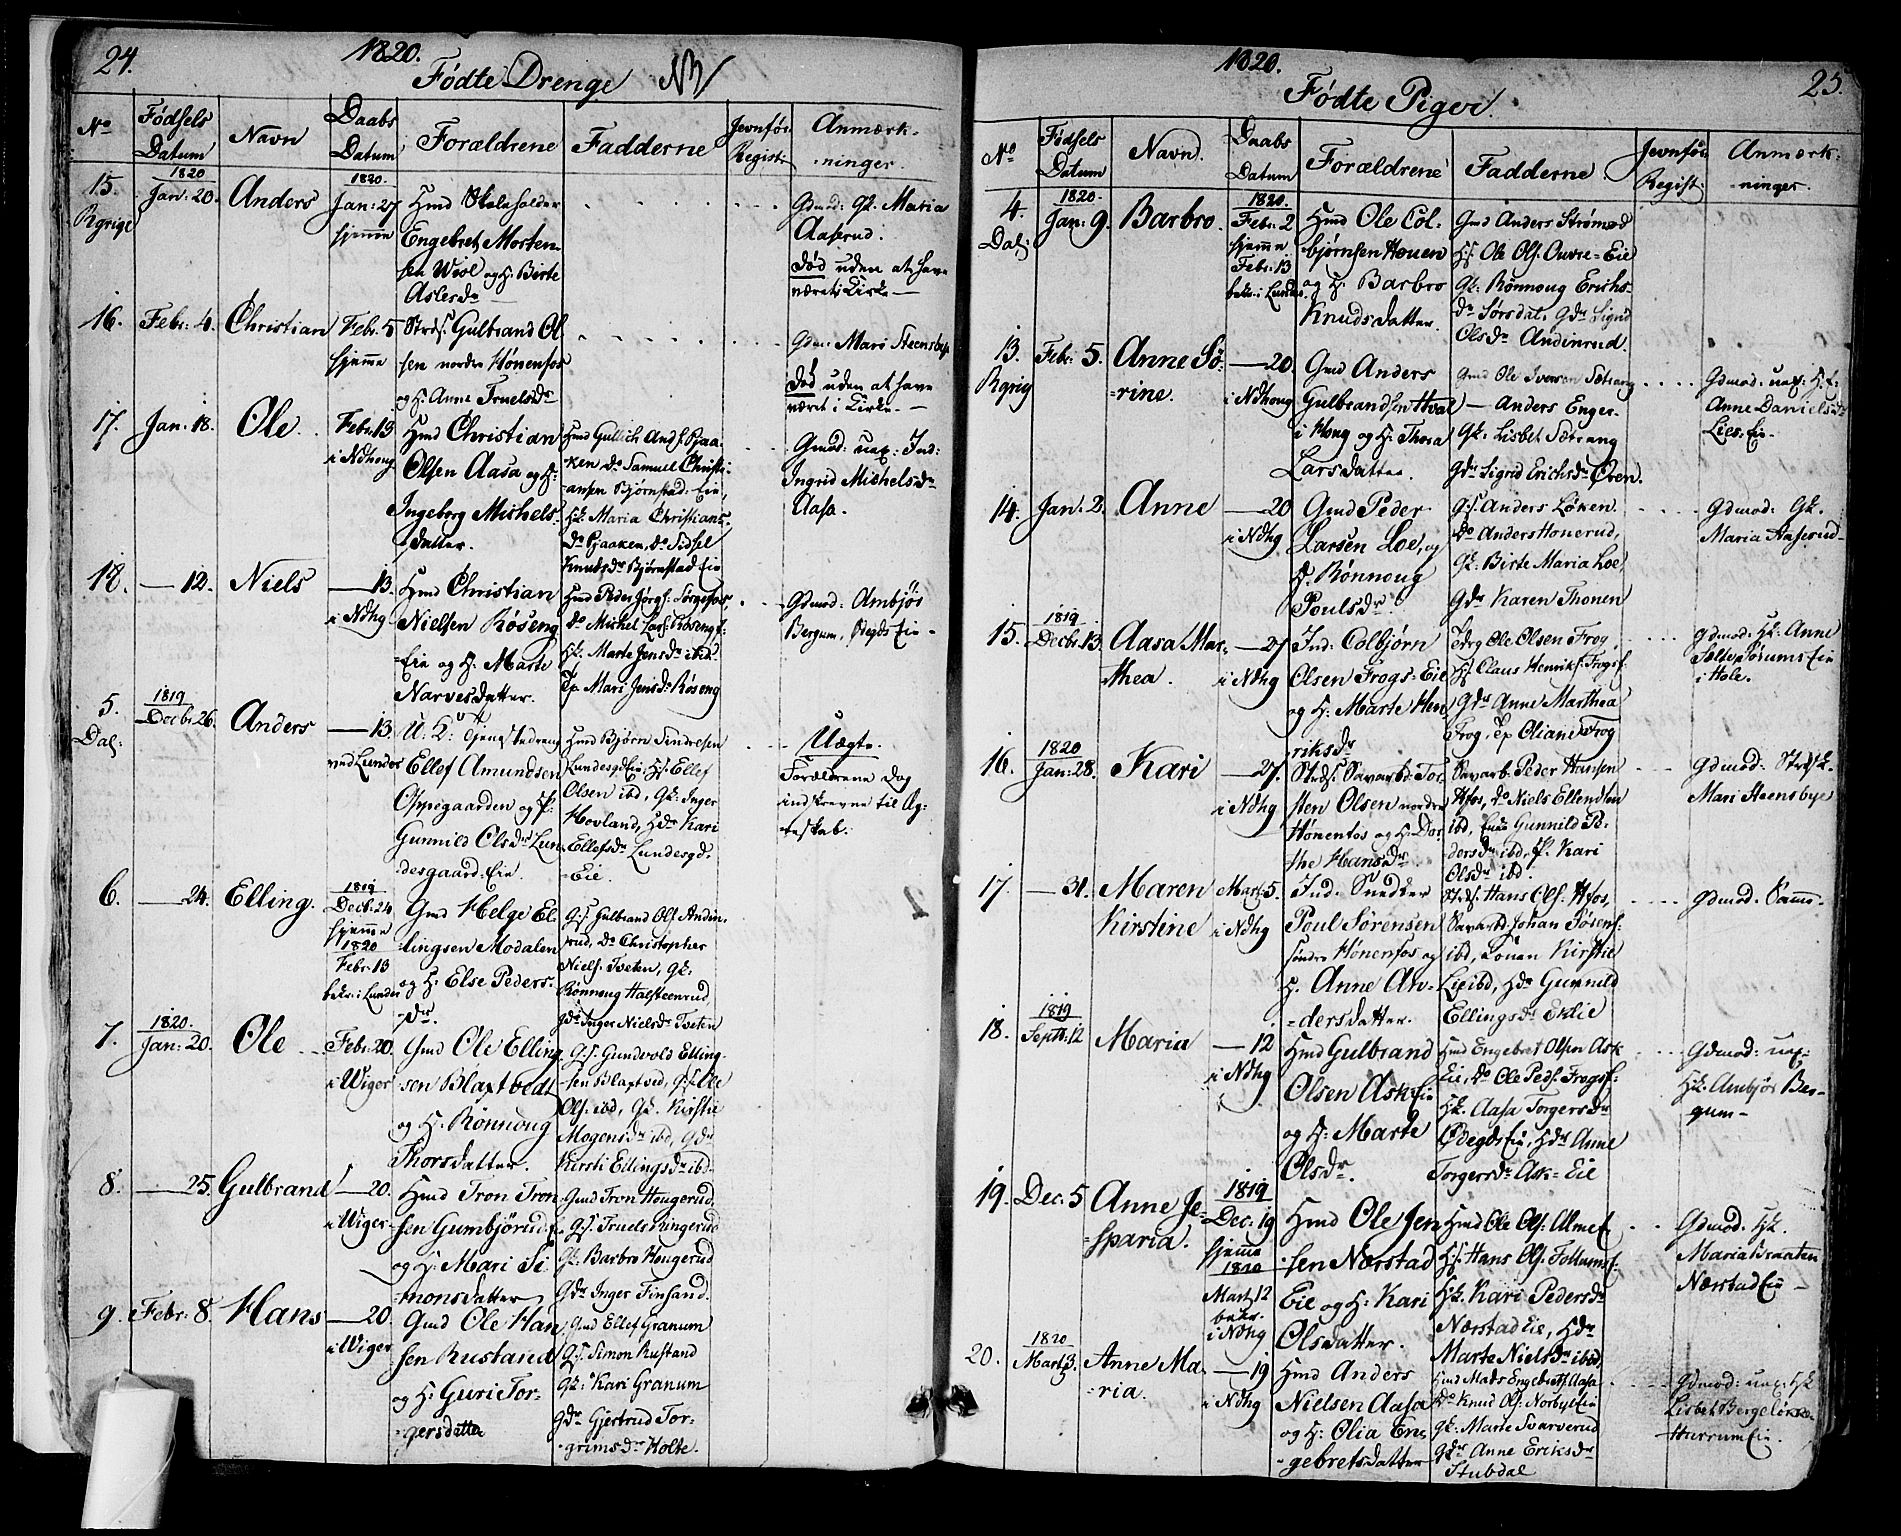 24.
1820.
Fødte Drenge
No
Fødsels Datum
Navn
Daabs Datum
Forældrene
Fadderne
Jevnfør Regist:
Anmærk-
ninger.
15.
Rgrige
1820
Jan: 20.
Anders
1820.
Jan: 27
hjemme
Hmd Skoleholder
Engebret Morten-
sen Wiol og H: Birte
Aslesdr
Gdmod: Gk. Maria
Aaserud.
død uden at have
været i Kirke —
16.
Febr: 4.
Christian
Febr. 5
hjemme
Strds. Gulbrand Ol
sen nordre Hønenfos
og H. Anne Truelsdr
Gdm: Mari Steensbye
død uden at have
været i Kirke —
17.
Jan: 18.
Ole
Febr. 13
i Ndhoug
Hmd Christian
Olsen Aasa og H:
Ingeborg Michels-
datter.
Hmd Gullich And
ken do Samuel Christi-
ansen Bjørnstad-Eie,
Hk. Maria Christians-
dr do Sidsel
Knudsdr Bjørnstad Eie
Gmod: uax: Ind:
Ingrid Michelsdr
Aasa.
18.
— 12.
Niels
— 13.
i Ndhg
Hmd Christian
Nielsen Røseng
-Eie og H. Marte
Narvesdatter.
Hmd Peder
do Michel Lars: Røseng
Hk. Marte Jensdr ibid
Tp Mari Jensdr Røseng
Gdmod: Ambjør
Bergum, Ødegds Eie —
5.
Dal:
1819
Decbr. 26.
Anders
— 13.
ved Lunder
U. K: Tjenestedreng
Ellef Amundsen
Oppegaarden og P:
Gunnild Olsdr Lun-
desgaard-Eie.
Hmd Bjørn Sindresen
LundesgdEie, Hs. Ellef
Olsen ibd, Gk: Inger
Hovland, Hdr Kari
Ellefsdr Lundesgd.
-Eie.
Uægte.
Forældrene dog
indskrevne til Æg-
teskab.
6.
— 24.
Elling.
1819
Decb. 24
hjemme
1820
Febr. 13
bekr. i Lunder
Gmd Helge El-
lingsen Modalen
og H: Else Peders-
dr.
Gs. Gulbrand Ols Andin-
rud, do Christopher
Niels. Tveten, Gk:
Rønnoug Halsteenrud
Gdr Inger Nielsdr Tveten
7.
1820.
Jan: 20.
Ole
Febr. 20.
i Wiger
Gmd Ole Elling
sen Blaxtvedt
og H. Rønnoug
Thorsdatter.
Gs. Gundvold Elling-
sen Blaxtved, Gs. Ole
Ols. ibd, Gk. Kirstie
Mogensdr ibd, Gdr
Kirsti Ellingsdr ibd.
8.
— 25.
Gulbrand
— 20.
i Wiger
Hmd Tron Tron
sen Gumbjørud
og H: Mari Si
monsdatter
Gmd Tron Hougerud
Gs. Truels Ringerud
Gk. Barbro Hougerud
Gdr Inger Finsand.
9.
Febr: 8.
Hans
— 20.
i Wiger
Gmd Ole Han
sen Rustand
og H: Guri Tor-
gersdatter
Gmd Ellef Granum
Gs. Simon Rustand
Gk: Kari Granum
Gdr Gjertrud Tor-
grimsdr Holte.
1820.
25.
Fødte Piger.
No
Fødsels Datum
Navn.
Daabs Datum
Forældrene
Fadderne.
Jevnfør Regist:
Anmærk:
ninger.
4.
Dal:
1820.
Jan: 9.
Barbro.
1820.
Febr: 2
hjemme
Febr: 13
bekr. i Lunder
Hmd Ole Col-
bjørnsen Houen
og H. Barbro
Knudsdatter.
Gmd Anders Strømsod
Hs. Ole Ols. Ouvre-Eie
Gk. Rønnoug Erichs-
dr Sørsdal, Gdr Sigrid
Olsdr Andinrud.
13.
Rgrig
Febr: 5.
Anne Sø-
rine.
— 20.
i Ndhoug
Gmd Anders
Gulbrandsen Hval
i Houg og H. Thora
Larsdatter
Gmd Ole Iversen Sætrang
— Anders Enger-
Gk. Lisbet Sætrang
Gdr Sigrid Erichsdr Oven.
Gdmod: uax: H. f.
Anne Danielsdr
Lies-Eie.
14.
Jan: 2.
Anne
— 20
i Ndhg
Gmd Peder
Larsen Loe, og
H. Rønnoug
Poulsdr.
Gs. Anders Løken.
do Anders Honerud,
Gk. Birte Maria Loe,
Gdr Karen Thonen
Gdmod: Gk.
Maria Aaserud —
15.
1819
Decbr. 13
Aasa Mar-
thea.
— 27
i Ndhg
Ind: Colbjørn
Olsen Frogs-Eie
og H: Marte Hen
riksdr
Ole Olsen Frog
Hs. Claus Henriks. Frogs
Gdr Anne Marthea
Frog, Tp Oliane Frog
Gdmod: Hk: Anne
Eie
i Hole.
16.
1820
Jan: 28.
Kari
— 27.
i Ndhg
Strds. Savarbd. Tor-
sten Olsen nordre
Hønenfos og H. Dor-
the Hansdr
Savarb. Peder Hansen
Hfos, do Niels Ellendsen
ibd, Enke Gunnild Pe-
dersdr ibd, P. Kari
Olsdr ibd.
Gdmod: Strdsk.
Mari Steensbye
17.
— 31.
Maren
Kirstine
Mart: 5.
i Ndhg
Ind. Snedker
Poul Sørensen
søndre Hønenfos og
H. Anne An-
dersdatter.
Strds. Hans Ols. Hfos,
Savarbd. Johan
ibd, Konen Kirstie
Lie ibd, Hdr Gunnild
Ellingsdr Eklie
Gdmod. Samme.
18.
1819
Septb. 12
Maria
— 12
i Ndhg
Hmd Gulbrand
Olsen Ask Eie
og H: Marte
Olsdr.
Hmd Engebret Olsen Ask
Eie, do Ole Peds. Frogs
Hk. Aasa Torgersdr
Ødegds Eie, Hdr Anne
Torgersdr Ask-Eie
Gdmod: uax-
Hk. Ambjør Ber-
gum —
19.
Dec: 5
Anne Je-
sparia.
1819
Dec: 19
hjemme
1820
Mart: 12
bekr.
i Ndhg
Hmd Ole Jen
sen Nærstad
Eie og H: Kari
Olsdatter.
Hmd Ole Ols. Almef
Hs. Hans Ols. Follum
Hk. Kari Pedersdr
Nærstad Eie, Hdr
Marte Nielsdr ibid,
Gdmod: Hk.
Maria Braaten
Nærstad Eie —
20.
1820
Mart: 3.
Anne Ma-
ria.
— 19
i Ndhg
Hmd Anders
Nielsen Aasa
og H: Olia En-
gebretsdatter
Hmd Mads Engebrets. Aasa
do Knud Ols. Norbye Eie
Gk. Marte Svarverud
Gdr Anne Eriksdr
Stubdal
Gdmod: uax: Hk
Lisbet Bergeløkke-
Hurrum Eie.